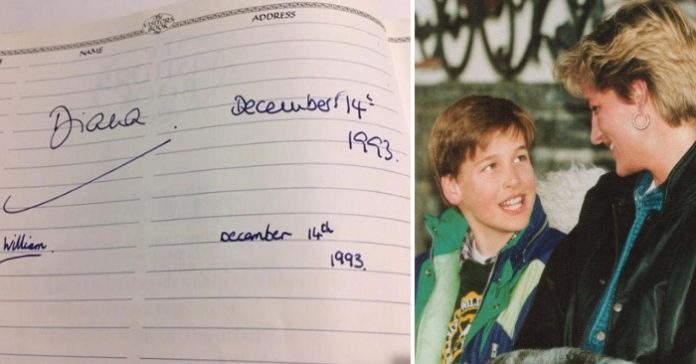 THE VISITORS BOOK
NAME
ADDRESS
Diana
December 14th
1993.
William
December 14th
1993.